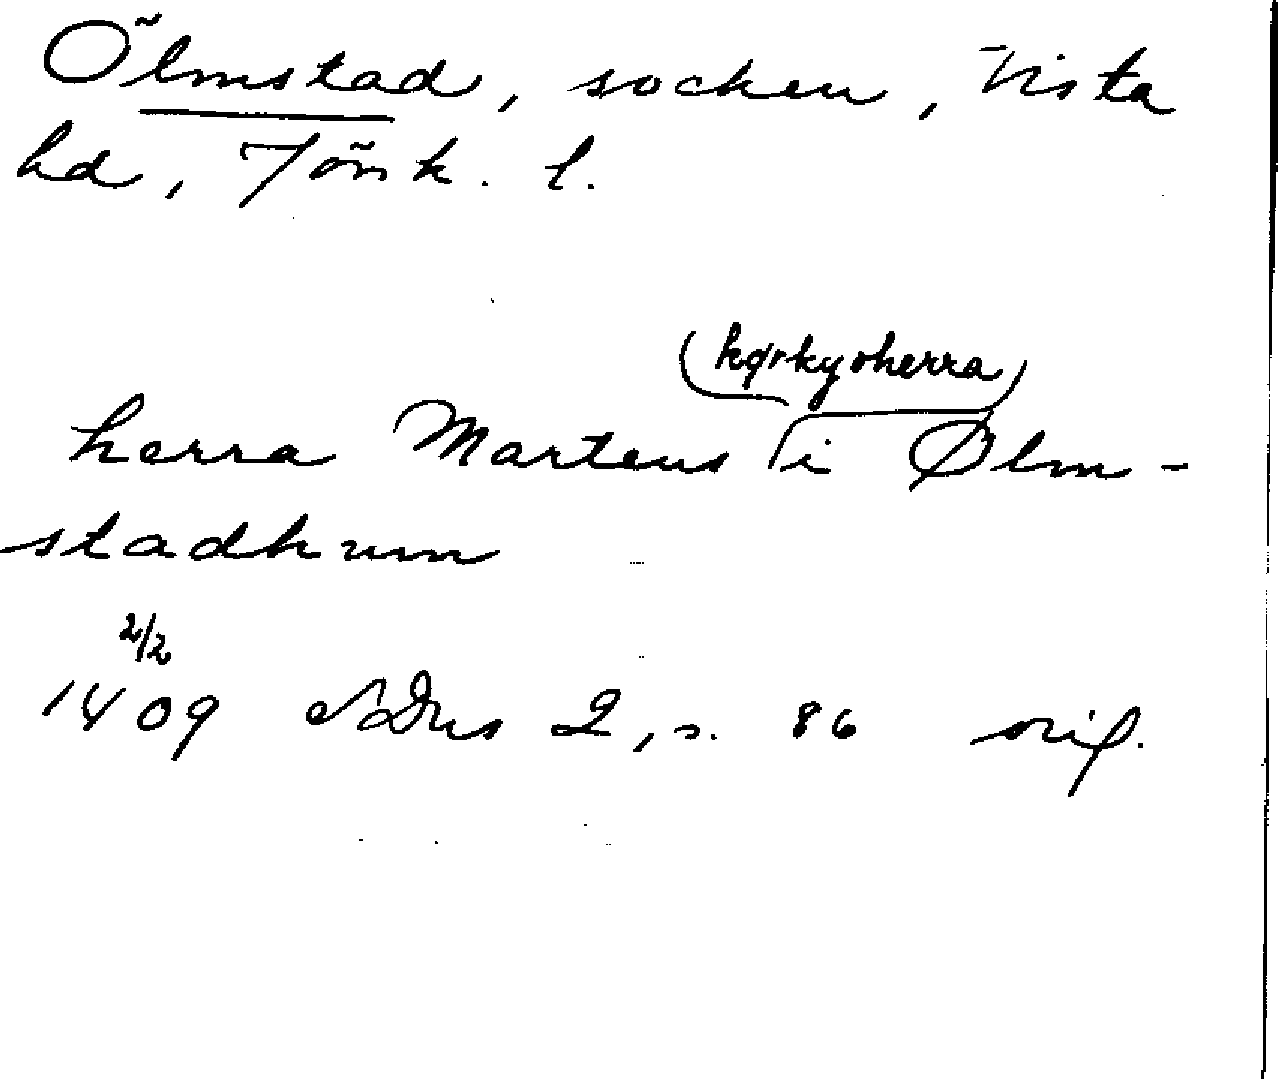 Ölmstad, socken, Vista
hd, Jönk. l.
(kyrkyoherra)
herra Martens i Ølm-
stadhum
2/2
1409 SDns 2, s. 86 orig.